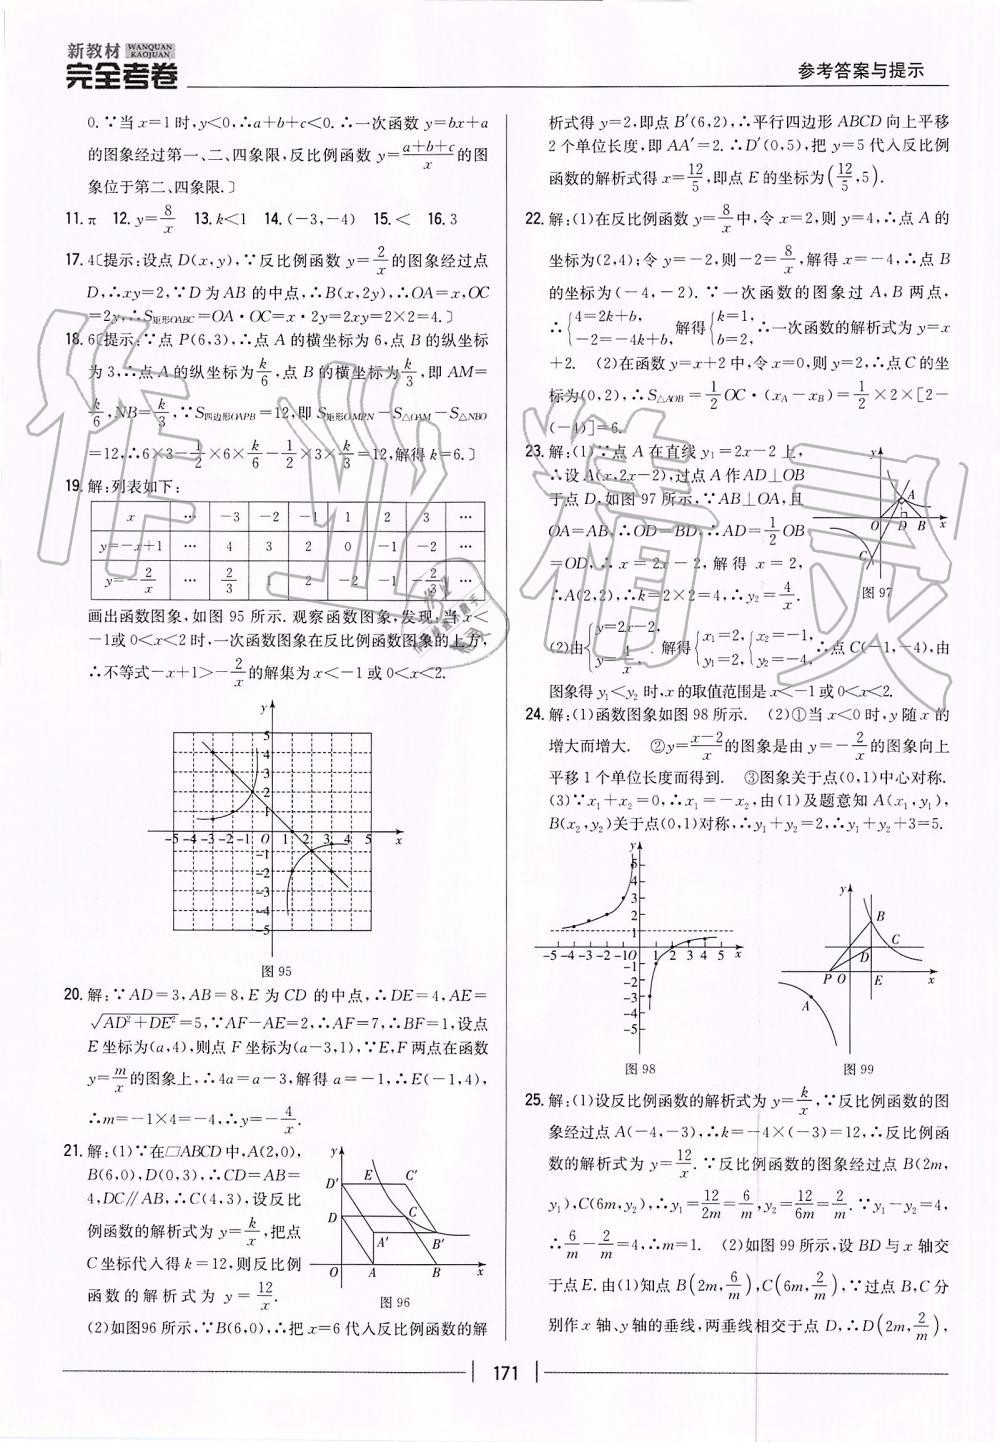 新教材 WANQUAN KAOJUAN
完全考卷
参考答案与提示
0.∵当x=1时,y<0,∴a+b+c<0.∴一次函数y=bx+a
的图象经过第一、二、四象限,反比例函数y=(a+b+c)/x的图
象位于第二、四象限.〕
11.π 12.y=8/x 13.k<1 14.(-3,-4) 15.< 16.3
17.4〔提示:设点D(x,y),∵反比例函数y=2/x的图象经过点
D,∴xy=2,∵D为AB的中点,∴B(x,2y),∴OA=x,OC
=2y,∴S矩形OABC=OA·OC=x·2y=2xy=2×2=4.〕
18.6〔提示:∵点P(6,3),∴点A的横坐标为6,点B的纵坐标
为3,∴点A的纵坐标为k/6,点B的横坐标为k/3,即AM=
k/6,NB=k/3,∵S四边形OAPB=12,即S矩形OMPN-S△OAM-S△NBO
=12,∴6×3-1/2×6×k/6-1/2×3×k/3=12,解得k=6.〕
19.解:列表如下:
x … -3 -2 -1 1 2 3 …
y=-x+1 … 4 3 2 0 -1 -2 …
y=-2/x … 2/3 1 2 -2 -1 -2/3 …
画出函数图象,如图95所示.观察函数图象,发现:当x<
-1或0<x<2时,一次函数图象在反比例函数图象的上方,
∴不等式-x+1>-2/x的解集为x<-1或0<x<2.
y
5
4
3
2
1
-5 -4 -3 -2 -1 O 1 2 3 4 5 x
-1
-2
-3
-4
-5
图95
20.解:∵AD=3,AB=8,E为CD的中点,∴DE=4,AE=
√(AD²+DE²)=5,∵AF-AE=2,∴AF=7,∴BF=1,设点
E坐标为(a,4),则点F坐标为(a-3,1),∵E,F两点在函数
y=m/x的图象上,∴4a=a-3,解得a=-1,∴E(-1,4),
∴m=-1×4=-4,∴y=-4/x.
21.解:(1)∵在□ABCD中,A(2,0),
B(6,0),D(0,3),∴CD=AB=
4,DC∥AB,∴C(4,3),设反比
例函数的解析式为y=k/x,把点
C坐标代入得k=12,则反比例
函数的解析式为y=12/x.
y
D′ E C′
D C
A′ B′
O A B x
图96
(2)如图96所示,∵B(6,0),∴把x=6代入反比例函数的解
析式得y=2,即点B′(6,2),∴平行四边形ABCD向上平移
2个单位长度,即AA′=2.∴D′(0,5),把y=5代入反比例
函数的解析式得x=12/5,即点E的坐标为(12/5,5).
22.解:(1)在反比例函数y=8/x中,令x=2,则y=4,∴点A的
坐标为(2,4);令y=-2,则-2=8/x,解得x=-4,∴点B
的坐标为(-4,-2).∵一次函数的图象过A,B两点,
∴{4=2k+b, -2=-4k+b, 解得{k=1, b=2, ∴一次函数的解析式为y=x
+2. (2)在函数y=x+2中,令x=0,则y=2,∴点C的坐
标为(0,2),∴S△AOB=1/2OC·(xA-xB)=1/2×2×[2-
(-4)]=6.
23.解:(1)∵点A在直线y₁=2x-2上,
∴设A(x,2x-2),过点A作AD⊥OB
于点D,如图97所示,∵AB⊥OA,且
OA=AB,∴OD=BD,∴AD=1/2OB
=OD,∴x=2x-2,解得x=2,
∴A(2,2),∴k=2×2=4,∴y₂=4/x.
y
A
O D B x
C
图97
(2)由{y=2x-2, y=4/x, 解得{x₁=2, y₁=2, {x₂=-1, y₂=-4, ∴点C(-1,-4),由
图象得y₁<y₂时,x的取值范围是x<-1或0<x<2.
24.解:(1)函数图象如图98所示. (2)①当x<0时,y随x的
增大而增大. ②y=(x-2)/x的图象是由y=-2/x的图象向上
平移1个单位长度而得到. ③图象关于点(0,1)中心对称.
(3)∵x₁+x₂=0,∴x₁=-x₂,由(1)及题意知A(x₁,y₁),
B(x₂,y₂)关于点(0,1)对称,∴y₁+y₂=2,∴y₁+y₂+3=5.
y
5
4
3
2
1
-5 -4 -3 -2 -1 O 1 2 3 4 5 x
-1
-2
-3
-4
-5
图98
y
B
C
D
P O E x
A
图99
25.解:(1)设反比例函数的解析式为y=k/x,∵反比例函数的图
象经过点A(-4,-3),∴k=-4×(-3)=12,∴反比例函
数的解析式为y=12/x.∵反比例函数的图象经过点B(2m,
y₁),C(6m,y₂),∴y₁=12/2m=6/m,y₂=12/6m=2/m.∵y₁-y₂=4,
∴6/m-2/m=4,∴m=1. (2)如图99所示,设BD与x轴交
于点E.由(1)知点B(2m,6/m),C(6m,2/m),∵过点B,C分
别作x轴、y轴的垂线,两垂线相交于点D,∴D(2m,2/m),
171
作业精灵